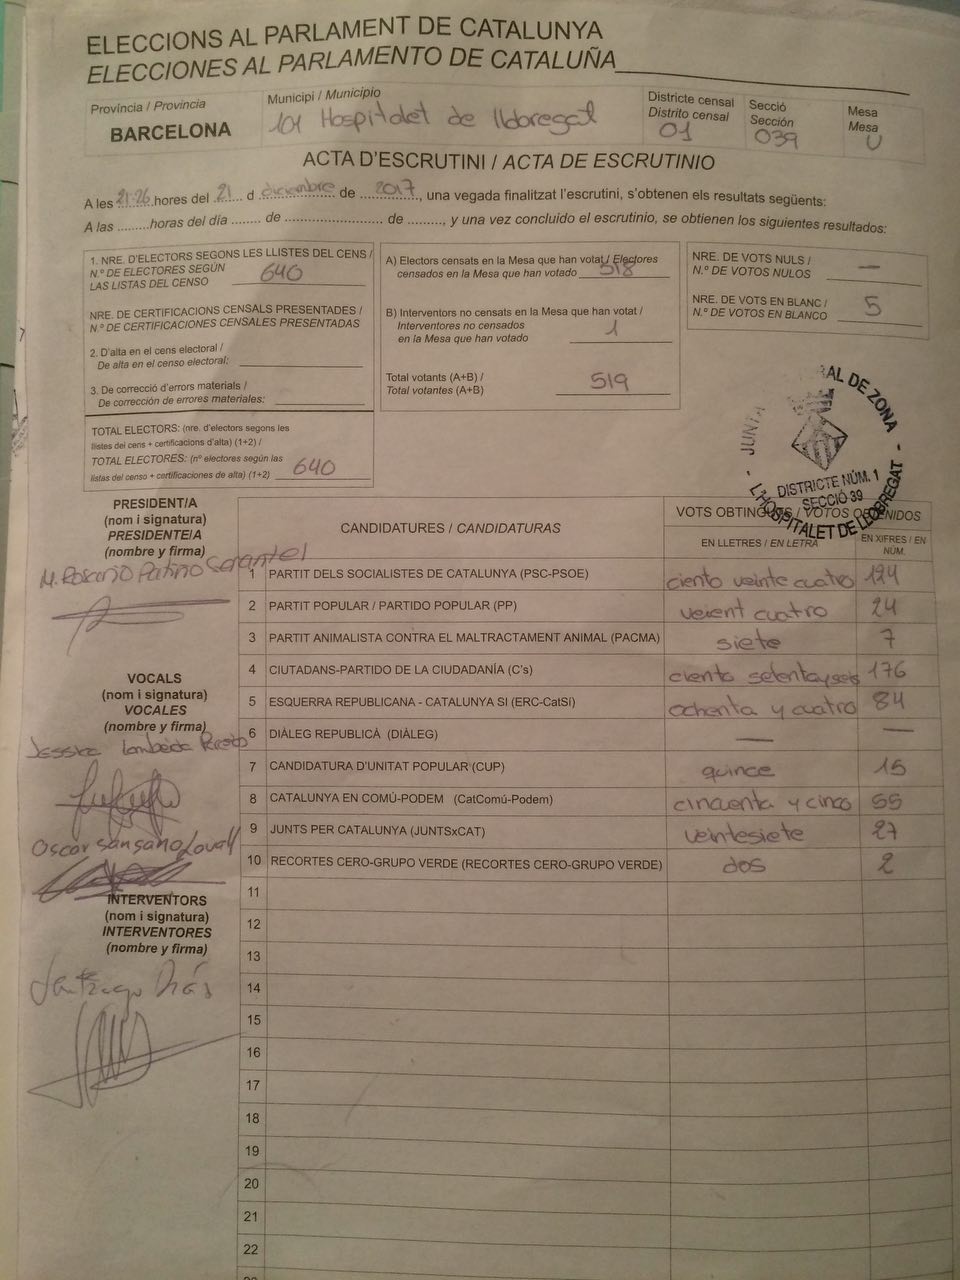 ELECCIONS AL PARLAMENT DE CATALUNYA
ELECCIONES AL PARLAMENTO DE CATALUÑA
Província / Provincia
BARCELONA
Municipi / Municipio
101 Hospitalet de llobregat
Districte censal
Distrito censal
01
Secció
Sección
039
Mesa
Mesa
U
ACTA D'ESCRUTINI / ACTA DE ESCRUTINIO
A les 21:26 hores del 21 d diciembre de 2017, una vegada finalitzat l'escrutini, s'obtenen els resultats següents:
A las .........horas del día ........ de ........................ de ........., y una vez concluido el escrutinio, se obtienen los siguientes resultados:
1. NRE. D'ELECTORS SEGONS LES LLISTES DEL CENS /
N.º DE ELECTORES SEGÚN
LAS LISTAS DEL CENSO 640
NRE. DE CERTIFICACIONS CENSALS PRESENTADES /
N.º DE CERTIFICACIONES CENSALES PRESENTADAS
2. D'alta en el cens electoral /
De alta en el censo electoral:
3. De correcció d'errors materials /
De corrección de errores materiales:
TOTAL ELECTORS: (nre. d'electors segons les
llistes del cens + certificacions d'alta) (1+2) /
TOTAL ELECTORES: (nº electores según las
listas del censo + certificaciones de alta) (1+2) 640
A) Electors censats en la Mesa que han votat / Electores
censados en la Mesa que han votado 518
B) Interventors no censats en la Mesa que han votat /
Interventores no censados
en la Mesa que han votado 1
Total votants (A+B) /
Total votantes (A+B) 519
NRE. DE VOTS NULS /
N.º DE VOTOS NULOS —
NRE. DE VOTS EN BLANC /
N.º DE VOTOS EN BLANCO 5
JUNTA AL DE ZONA
DISTRICTE NÚM. 1
SECCIÓ 39
- L'HOSPITALET DE LLOBREGAT -
PRESIDENT/A
(nom i signatura)
PRESIDENTE/A
(nombre y firma)
M. Rosario Patino
VOCALS
(nom i signatura)
VOCALES
(nombre y firma)
Jessica
Oscar Sansano
INTERVENTORS
(nom i signatura)
INTERVENTORES
(nombre y firma)
Santiago
CANDIDATURES / CANDIDATURAS
VOTS OBTINGUTS / VOTOS OBTENIDOS
EN LLETRES / EN LETRA
EN XIFRES / EN NÚM.
1 PARTIT DELS SOCIALISTES DE CATALUNYA (PSC-PSOE) ciento veinte cuatro 124
2 PARTIT POPULAR / PARTIDO POPULAR (PP) veient cuatro 24
3 PARTIT ANIMALISTA CONTRA EL MALTRACTAMENT ANIMAL (PACMA) siete 7
4 CIUTADANS-PARTIDO DE LA CIUDADANÍA (C's) ciento setentayseis 176
5 ESQUERRA REPUBLICANA - CATALUNYA SI (ERC-CatSí) ochenta y cuatro 84
6 DIÀLEG REPUBLICÀ (DIÀLEG) — —
7 CANDIDATURA D'UNITAT POPULAR (CUP) quince 15
8 CATALUNYA EN COMÚ-PODEM (CatComú-Podem) cincuenta y cinco 55
9 JUNTS PER CATALUNYA (JUNTSxCAT) veintesiete 27
10 RECORTES CERO-GRUPO VERDE (RECORTES CERO-GRUPO VERDE) dos 2
11
12
13
14
15
16
17
18
19
20
21
22